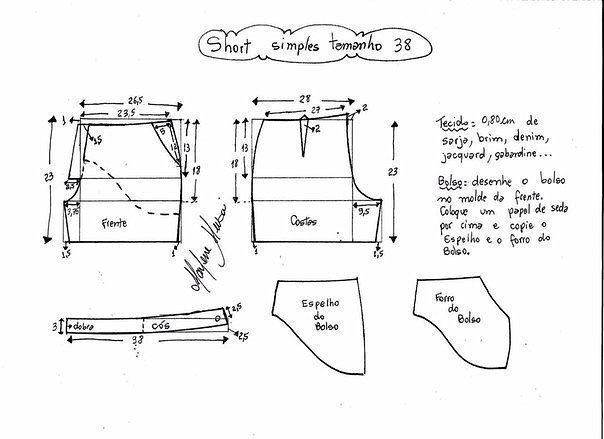 Short simples tamanho 38
26,5
23,5
1
1,5
5
12
13
18
23
2,5
3,75
Frente
1,5
1
28
27
2
2
13
18
23
9,5
Costas
1
1,5
Tecido: 0,80cm de
sarja, brim, denim,
jacquard, gabardine...
Bolso: desenhe o bolso
no molde da frente.
Coloque um papel de seda
por cima e copie o
Espelho e o forro do
Bolso.
Marlene Mukai
3
dobra
cós
2,5
2,5
98
Espelho
do
Bolso
Forro
do
Bolso